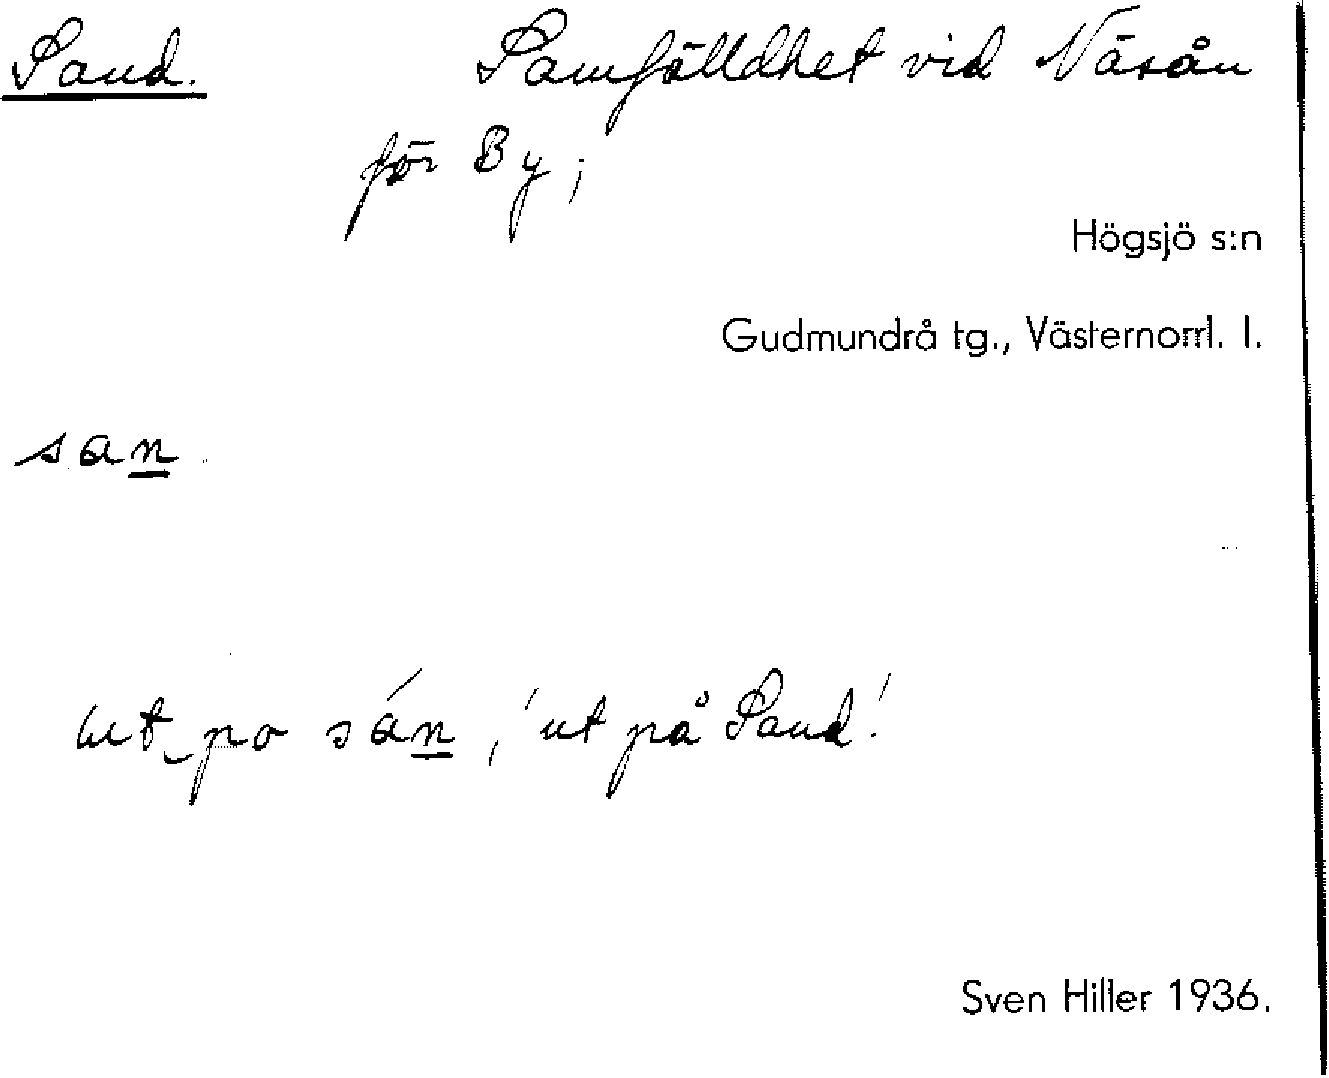 Sand. Samfälldhet vid Näsån
för By;
Högsjö s:n
Gudmundrå tg., Västernorrl. l.
san
ut po sán, 'ut på Sand'.
Sven Hiller 1936.